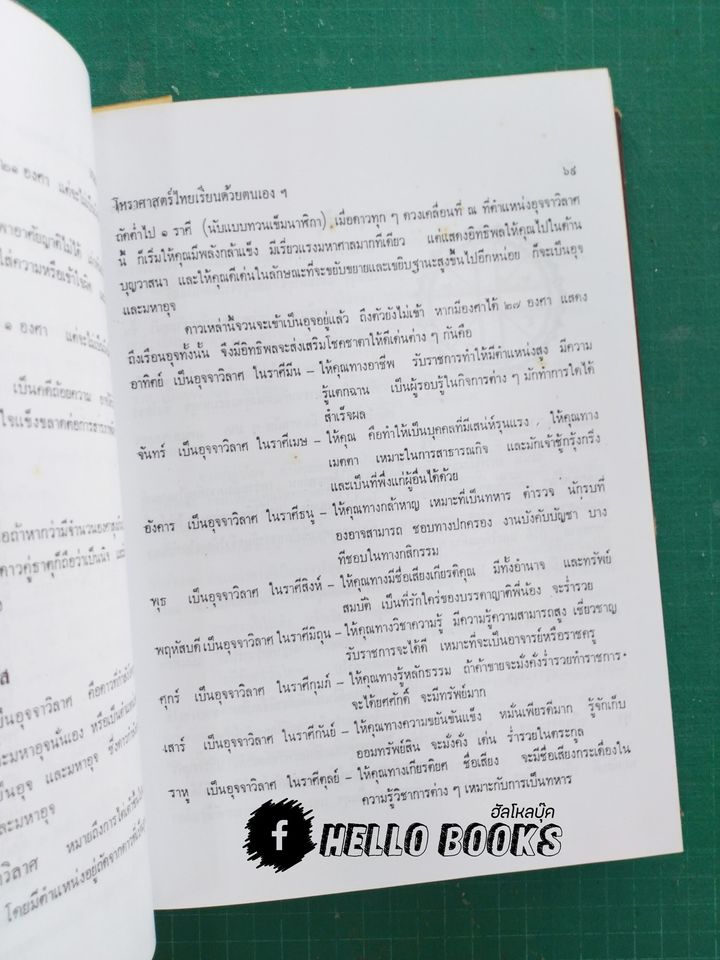 ๒๑ องศา แต่จะไม่เป็น
พาอาศัยญาติไม่ได้
ใส่ความหรือเข้าใจผิด
๑ องศา แต่จะไม่เป็น
เป็นคดีถ้อยความ
ใจแข็งขลาดต่อการ
อถ้าหากว่ามีจำนวนองศา
ดาวคู่ธาตุก็ถือว่าเป็นนิจ
ส
ป็นอุจจาวิลาศ คือดาวที่กำลัง
ะมหาอุจนั่นเอง หรือเป็นตำแหน่ง
ป็นอุจ และมหาอุจ ซึ่งดาว
และมหาอุจ
าวิลาศ หมายถึงการ
โดยมีตำแหน่งอยู่ถัดจากดาว
โหราศาสตร์ไทยเรียนด้วยตนเอง ฯ
๖๙
ถัดค่ำไป ๑ ราศี (นับแบบทวนเข็มนาฬิกา) เมื่อดาวทุก ๆ ดวงเคลื่อนที่ ณ ที่ตำแหน่งอุจจาวิลาศ
นี้ ก็เริ่มให้คุณมีพลังกล้าแข็ง มีเรี่ยวแรงมหาศาลมากทีเดียว แต่แสดงอิทธิพลให้คุณไปในด้าน
บุญวาสนา และให้คุณดีเด่นในลักษณะที่จะขยับขยายและเขยิบฐานะสูงขึ้นไปอีกหน่อย ก็จะเป็นอุจ
และมหาอุจ
ดาวเหล่านี้จวนจะเข้าเป็นอุจอยู่แล้ว ถึงตัวยังไม่เข้า หากมีองศาได้ ๒๗ องศา แสดง
ถึงเรือนอุจทั้งนั้น จึงมีอิทธิพลจะส่งเสริมโชคชาตาให้ดีเด่นต่าง ๆ กันคือ
อาทิตย์ เป็นอุจจาวิลาศ ในราศีมีน – ให้คุณทางอาชีพ รับราชการทำให้มีตำแหน่งสูง มีความ
รู้แตกฉาน เป็นผู้รอบรู้ในกิจการต่าง ๆ มักทำการใดได้
สำเร็จผล
จันทร์ เป็นอุจจาวิลาศ ในราศีเมษ – ให้คุณ คือทำให้เป็นบุคคลที่มีเสน่ห์รุนแรง ให้คุณทาง
เมตตา เหมาะในการสาธารณกิจ และมักเจ้าชู้กรุ้งกริ่ง
และเป็นที่พึ่งแก่ผู้อื่นได้ด้วย
อังคาร เป็นอุจจาวิลาศ ในราศีธนู – ให้คุณทางกล้าหาญ เหมาะที่เป็นทหาร ตำรวจ นักรบที่
องอาจสามารถ ชอบทางปกครอง งานบังคับบัญชา บาง
ทีชอบในทางกสิกรรม
พุธ เป็นอุจจาวิลาศ ในราศีสิงห์ – ให้คุณทางมีชื่อเสียงเกียรติคุณ มีทั้งอำนาจ และทรัพย์
สมบัติ เป็นที่รักใคร่ของบรรดาญาติพี่น้อง จะร่ำรวย
พฤหัสบดี เป็นอุจจาวิลาศ ในราศีมิถุน – ให้คุณทางวิชาความรู้ มีความรู้ความสามารถสูง เชี่ยวชาญ
รับราชการจะได้ดี เหมาะที่จะเป็นอาจารย์หรือราชครู
ศุกร์ เป็นอุจจาวิลาศ ในราศีกุมภ์ – ให้คุณทางรู้หลักธรรม ถ้าค้าขายจะมั่งคั่งร่ำรวยทำราชการ
จะได้ยศศักดิ์ จะมีทรัพย์มาก
เสาร์ เป็นอุจจาวิลาศ ในราศีกันย์ – ให้คุณทางความขยันขันแข็ง หมั่นเพียรดีมาก รู้จักเก็บ
ออมทรัพย์สิน จะมั่งคั่ง เด่น ร่ำรวยในตระกูล
ราหู เป็นอุจจาวิลาศ ในราศีตุลย์ – ให้คุณทางเกียรติยศ ชื่อเสียง จะมีชื่อเสียงกระเดื่องใน
ความรู้วิชาการต่าง ๆ เหมาะกับการเป็นทหาร
ฮัลโหลบุ๊ค
f HELLO BOOKS